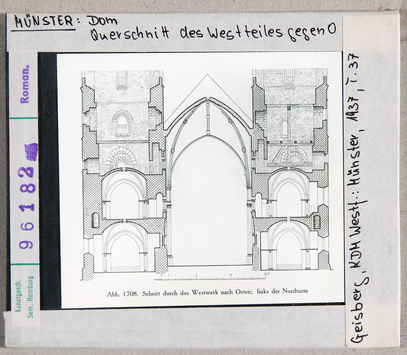 MÜNSTER: Dom
Querschnitt des Westteiles gegen O
Roman.
96182
Kunstgesch.
Sem. Hamburg
Abb. 1708. Schnitt durch das Westwerk nach Osten; links der Nordturm
Geisberg, KDM Westf.: Münster, 1937, T. 37